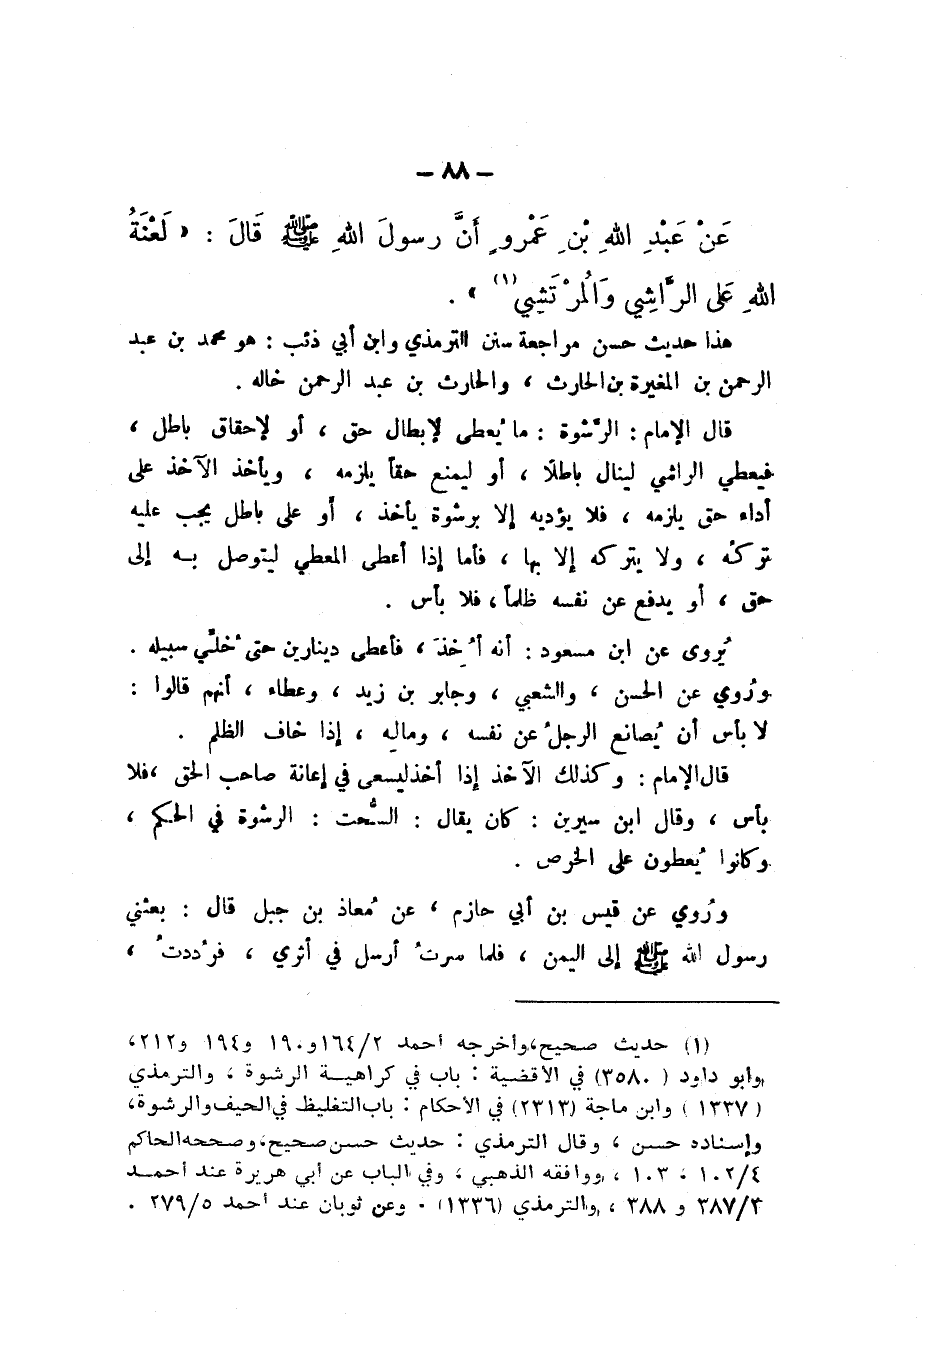 – ٨٨ –
عَنْ عَبْدِ اللهِ بْنِ عَمْرٍو أَنَّ رسولَ اللهِ ﷺ قَالَ : « لَعْنَةُ
اللهِ عَلى الرَّاشِي وَالمُرْتَشِي(١) » .
هذا حديث حسن مراجعة سنن الترمذي وابن أبي ذئب : هو محمد بن عبد
الرحمن بن المغيرة بن الحارث ، والحارث بن عبد الرحمن خاله .
قال الإمام : الرَّشوة : ما يُعطى لإبطال حق ، أو لإحقاق باطل ،
فيعطي الراشي لينال باطلًا ، أو ليمنع حقاً يلزمه ، ويأخذ الآخذ على
أداء حق يلزمه ، فلا يؤديه إلا برشوة يأخذ ، أو على باطل يجب عليه
تركُه ، ولا يتركه إلا بها ، فأما إذا أعطى المعطي ليتوصل بـه إلى
حق ، أو يدفع عن نفسه ظلماً ، فلا بأس .
يُروى عن ابن مسعود : أنه أُخِذَ ، فأعطى دينارين حتى خُلّي سبيله .
ورُوي عن الحسن ، والشعبي ، وجابر بن زيد ، وعطاء ، أنهم قالوا :
لا بأس أن يُصانع الرجلُ عن نفسه ، ومالِه ، إذا خاف الظلم .
قال الإمام : وكذلك الآخذ إذا أخذ ليسعى في إعانة صاحب الحق ، فلا
بأس ، وقال ابن سيرين : كان يقال : السُّحت : الرشوة في الحكم ،
وكانوا يُعطون على الخرص .
ورُوي عن قيس بن أبي حازم ، عن مُعاذ بن جبل قال : بعثني
رسول الله ﷺ إلى اليمن ، فلما سرتُ أرسل في أثري ، فرُددتُ ،
(١) حديث صحيح، وأخرجه أحمد ١٦٤/٢ و١٩٠ و١٩٤ و٢١٢،
وأبو داود ( ٣٥٨٠) في الأقضية : باب في كراهيـة الرشوة ، والترمذي
( ١٣٣٧ ) وابن ماجة (٢٣١٣) في الأحكام : باب التغليظ في الحيف والرشوة،
وإسناده حسن ، وقال الترمذي : حديث حسن صحيح، وصححه الحاكم
١٠٢/٤ ، ١٠٣ ، ووافقه الذهبي ، وفي الباب عن أبي هريرة عند أحمـد
٣٨٧/٢ و ٣٨٨ ، والترمذي (١٣٣٦) . وعن ثوبان عند أحمد ٢٧٩/٥ .